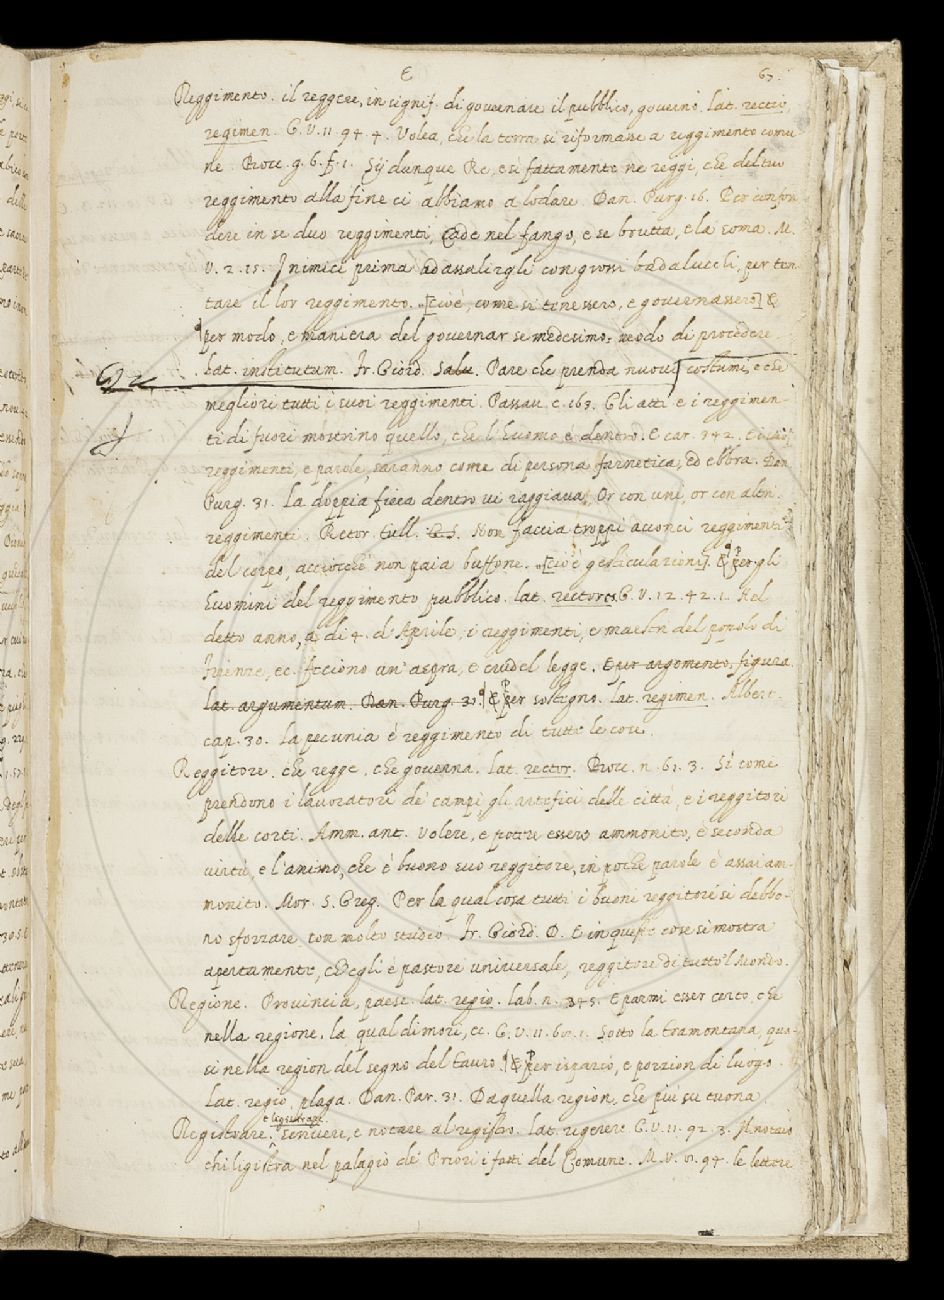 E 63.
Reggimento. il reggere, in signif. di governare il pubblico, governo. lat. rectio,
regimen. G. V. 11. 94. 4. Volea, che la terra si riformasse a reggimento comu
ne. Bocc. g. 6. f. 1. Sij dunque Re, e sì fattamente ne reggi, che del tuo
reggimento alla fine ci abbiamo a lodare. Dan. Purg. 16. Per confon
dere in se duo reggimenti, Cade nel fango, e se brutta, e la soma. M.
V. 2. 15. Inimici prima ad assalirgli con grossi badalucchi, per ten
tare il lor reggimento. [cioè, come si tenessero, e governassero] E
per modo, e maniera del governar se medesimo, modo di procedere.
lat. institutum. Fr. Giord. Salu. Pare che prenda nuovi costumi, e che
megliori tutti i suoi reggimenti. Passav. c. 163. Gli atti e i reggimen-
ti di fuori mostrino quello, che l'huomo è dentro. E car. 342. E i suoi
reggimenti, e parole, saranno come di persona farnetica, ed ebbra. Dan.
Purg. 31. La doppia fiera dentro vi raggiava, Or con uni, or con altri
reggimenti. Rettor. Tull. Non faccia troppi acconci reggimenti
del corpo, acciocchè non paia buffone. [cioè gesticulazioni]. E per gli
huomini del reggimento pubblico. lat. rectores. G. V. 12. 42. 1. Nel
detto anno, a di 4. d'Aprile, i reggimenti, e maestri del popolo di
Firenze, ec. feciono un' aspra, e crudel legge. E per argomento, figura.
lat. argumentum. Dan. Purg. 31. E per sostegno. lat. regimen. Albert.
cap. 30. La pecunia è reggimento di tutte le cose.
Reggitore. che regge, che governa. lat. rector. Bocc. n. 61. 3. Sì come
prendono i lavoratori de' campi gli artefici delle città, e i reggitori
delle corti. Amm. ant. Volere, e potere essere ammonito, è seconda
virtù, e l'animo, che è buono suo reggitore, in poche parole è assai am-
monito. Mor. S. Greg. Per la qual cosa tutti i buoni reggitori si debbo-
no sforzare con molto studio. Fr. Giord. D. E in queste cose si mostra
apertamente, ch'egli è pastore universale, reggitore di tutto'l Mondo.
Regione. Provincia, paese. lat. regio. Lab. n. 345. E parmi esser certo, che
nella regione, la qual dimori, ec. G. V. 11. 1. Sotto la tramontana, qua-
si nella region del segno del Tauro. E per ispazio, e porzion di luogo.
lat. regio, plaga. Dan. Par. 31. Da quella region, che più su tuona
e ligistrare.
Registrare. Scrivere, e notare al registro. lat. regerere. G. V. 11. 92. 3. Il notaio
chi ligistra nel palagio de' Priori i fatti del Comune. M. V. 94. le lettere